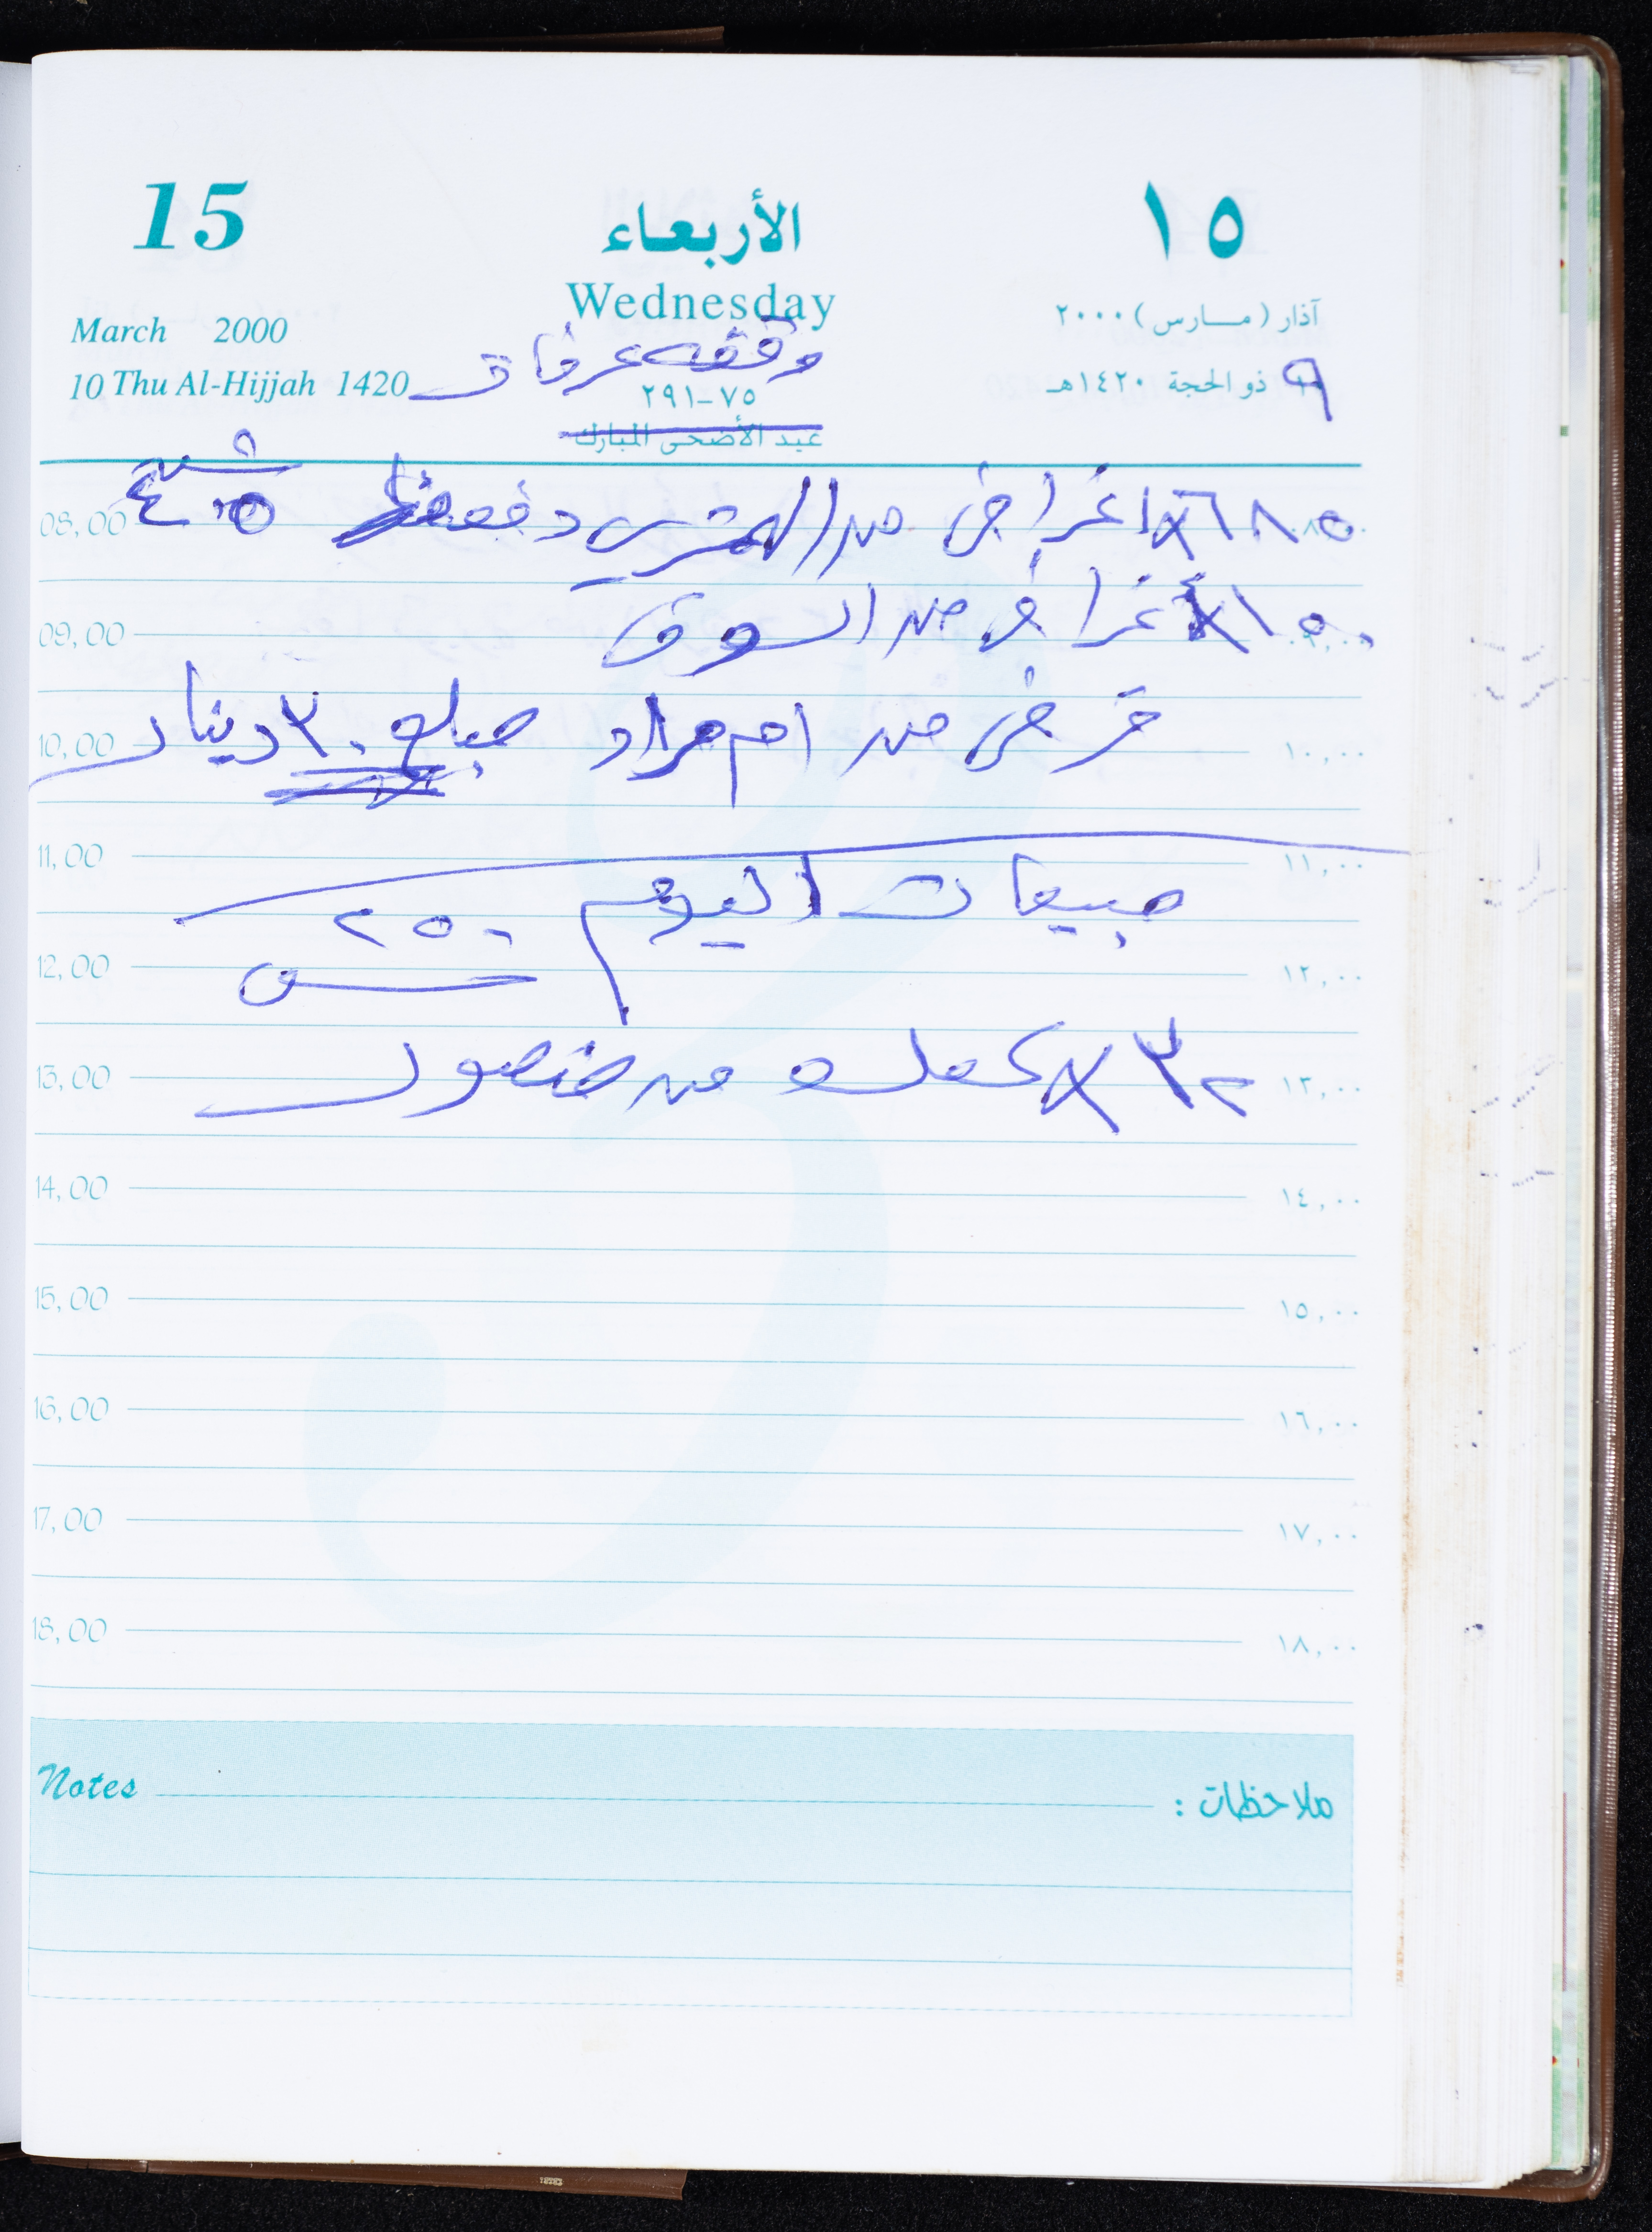 15 الأربعاء ١٥
Wednesday
March 2000 آذار (مارس) ٢٠٠٠
وقفه عرفات
10 Thu Al-Hijjah 1420 ٩ ذو الحجة ١٤٢٠هـ
٧٥-٢٩١
عيد الأضحى المبارك
شيع
08,00 اغراض من دفعة ٤٥٠
09,00 ١٥٠ × اغراض من السوق
10,00 قرض من ام مراد مبلغ ٣٠ دينار ١٠,٠٠
11,00 ١١,٠٠
مبيعات اليوم ٢٥٠
12,00 ش ١٢,٠٠
13,00 ٣٢ × كعك من منصور ١٣,٠٠
14,00 ١٤,٠٠
15,00 ١٥,٠٠
16,00 ١٦,٠٠
17,00 ١٧,٠٠
18,00 ١٨,٠٠
Notes ملاحظات :